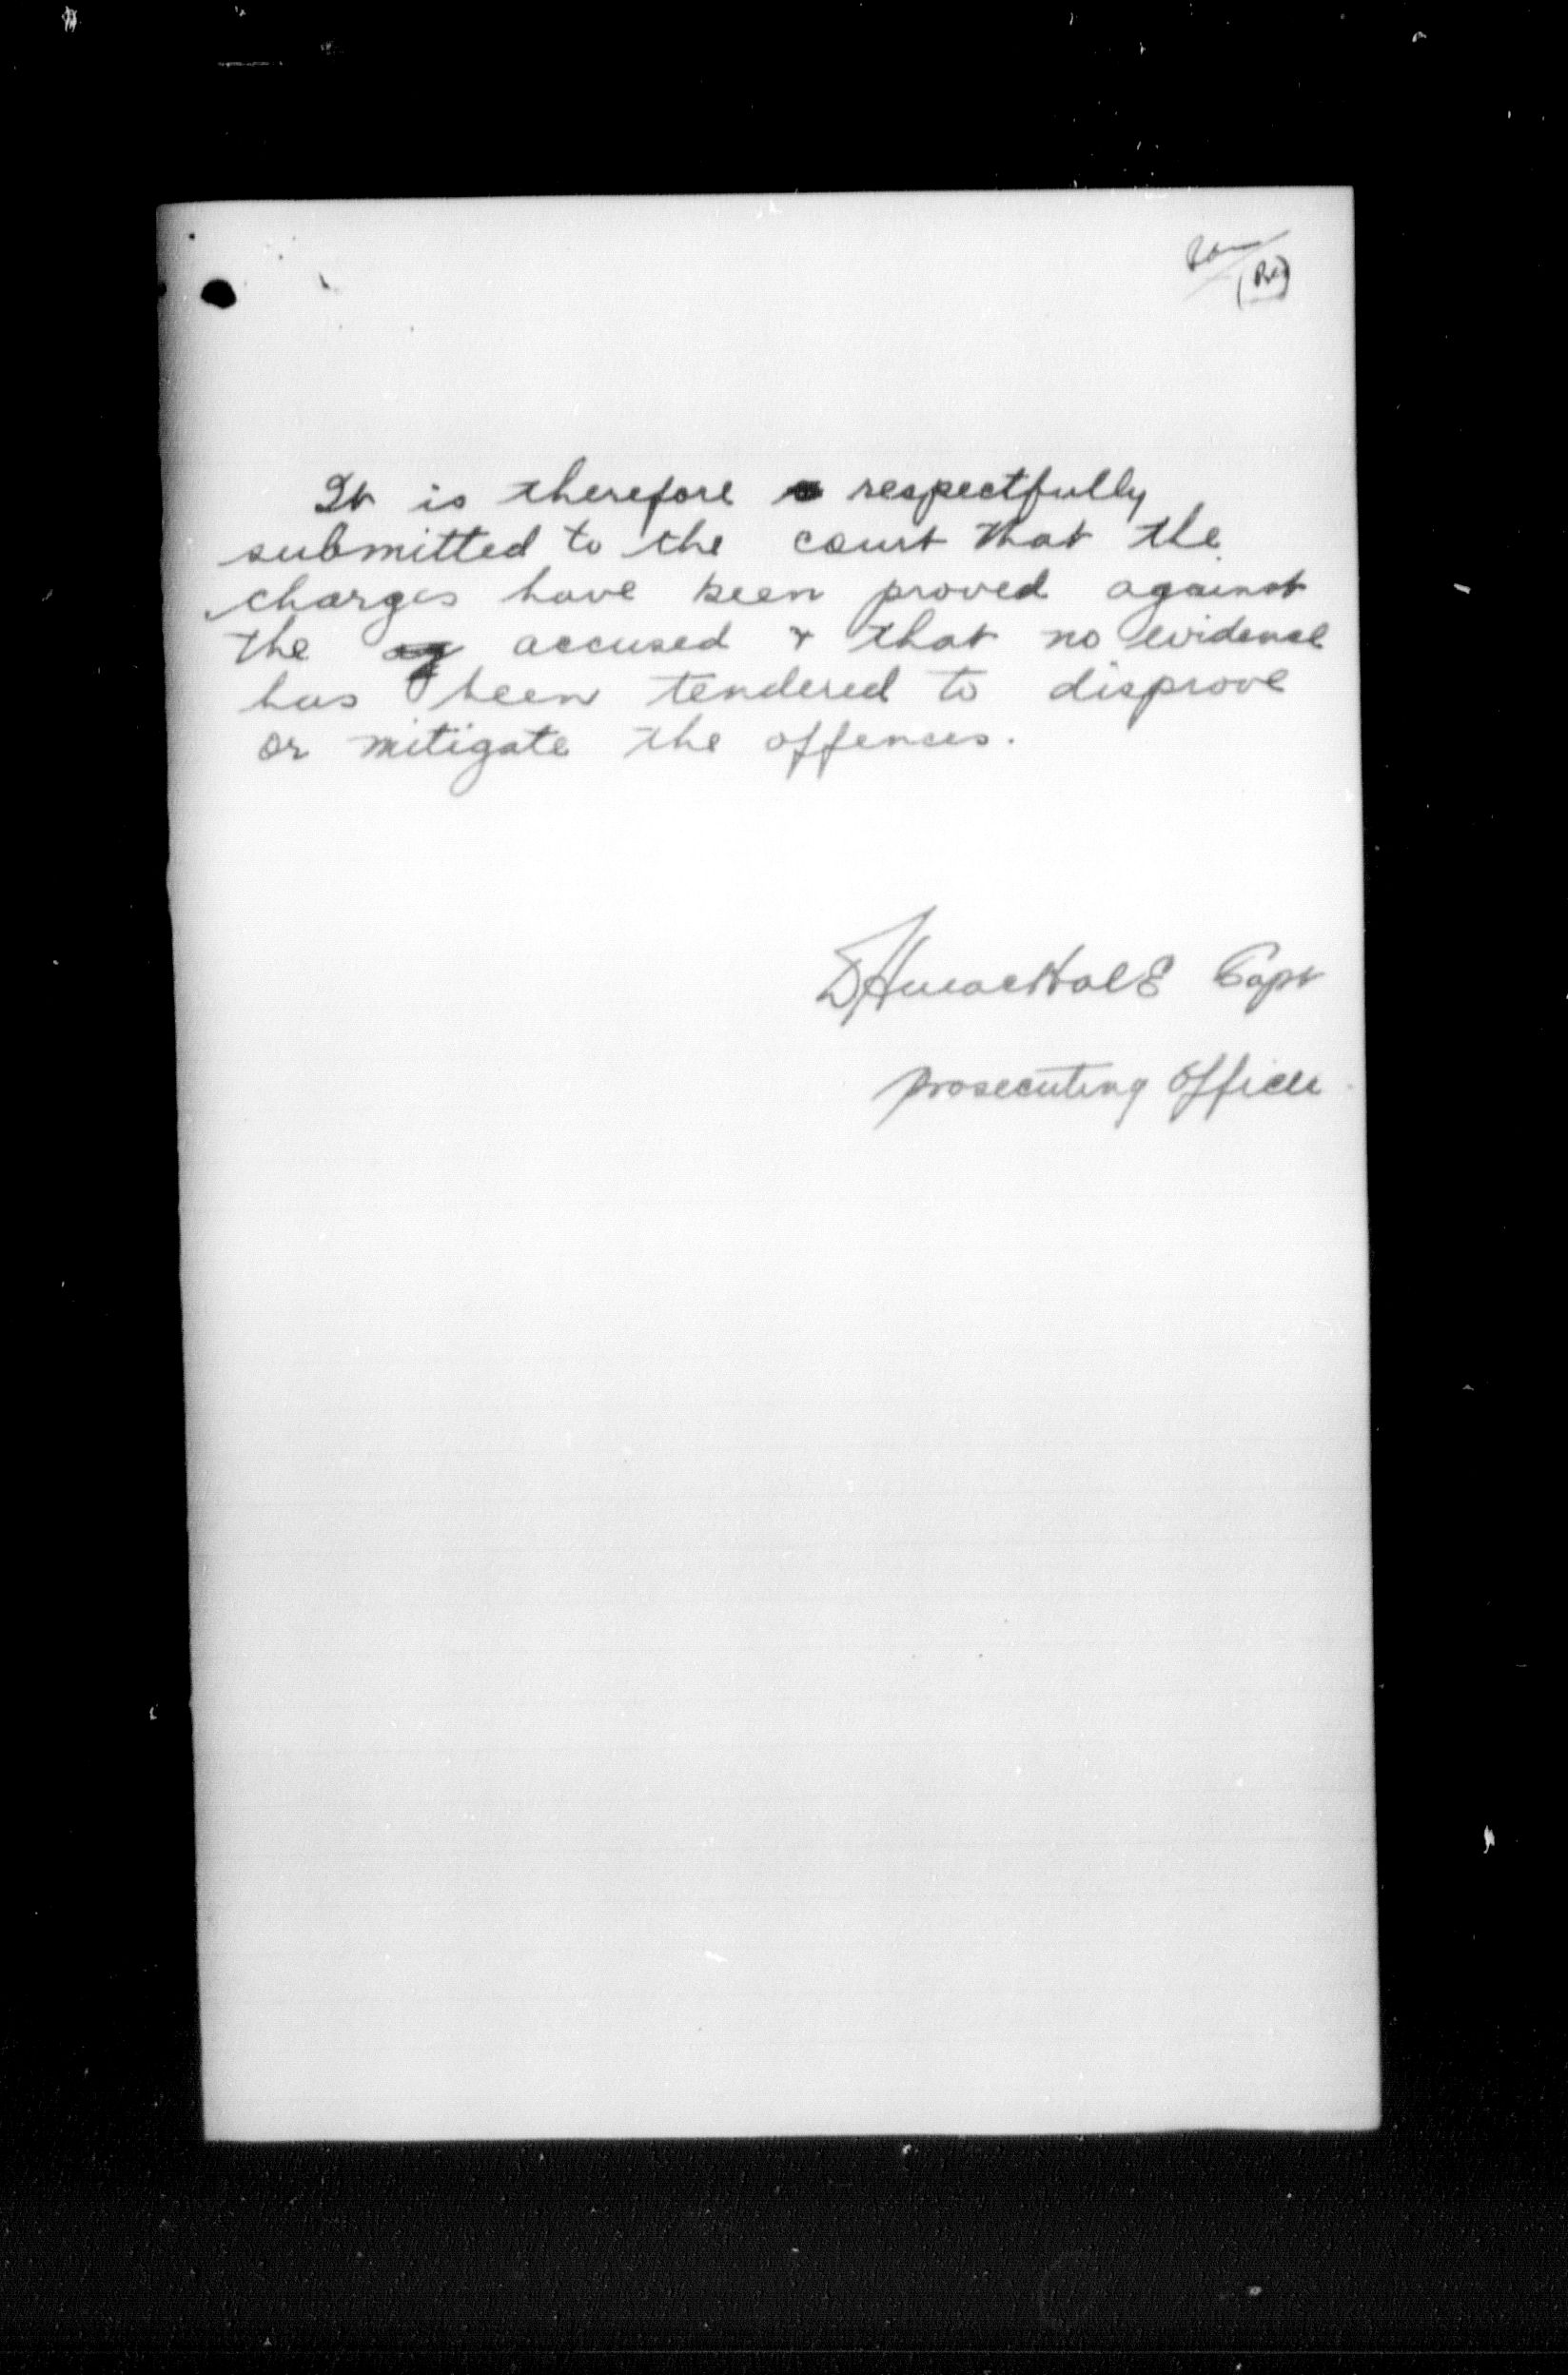 It is therefore respectfully
submitted to the court that the
charges have been proved against
the accused & that no evidence
has been tendered to disprove
or mitigate the offences.
Capt
prosecuting officer